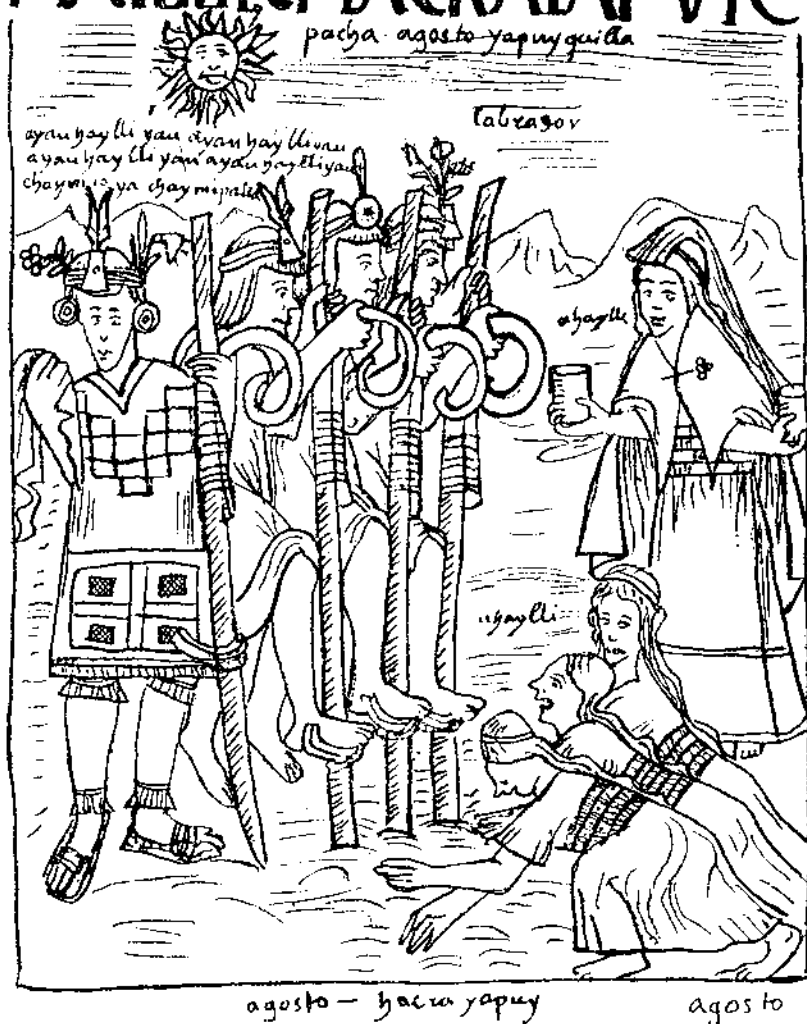 pacha · agosto yapuy quilla
labrador
ayau haylli yau ayau haylli yau
ayau haylli yau ayau haylli yau
chaymi
ahaylli
ahaylli
agosto – hacra yapuy
agosto